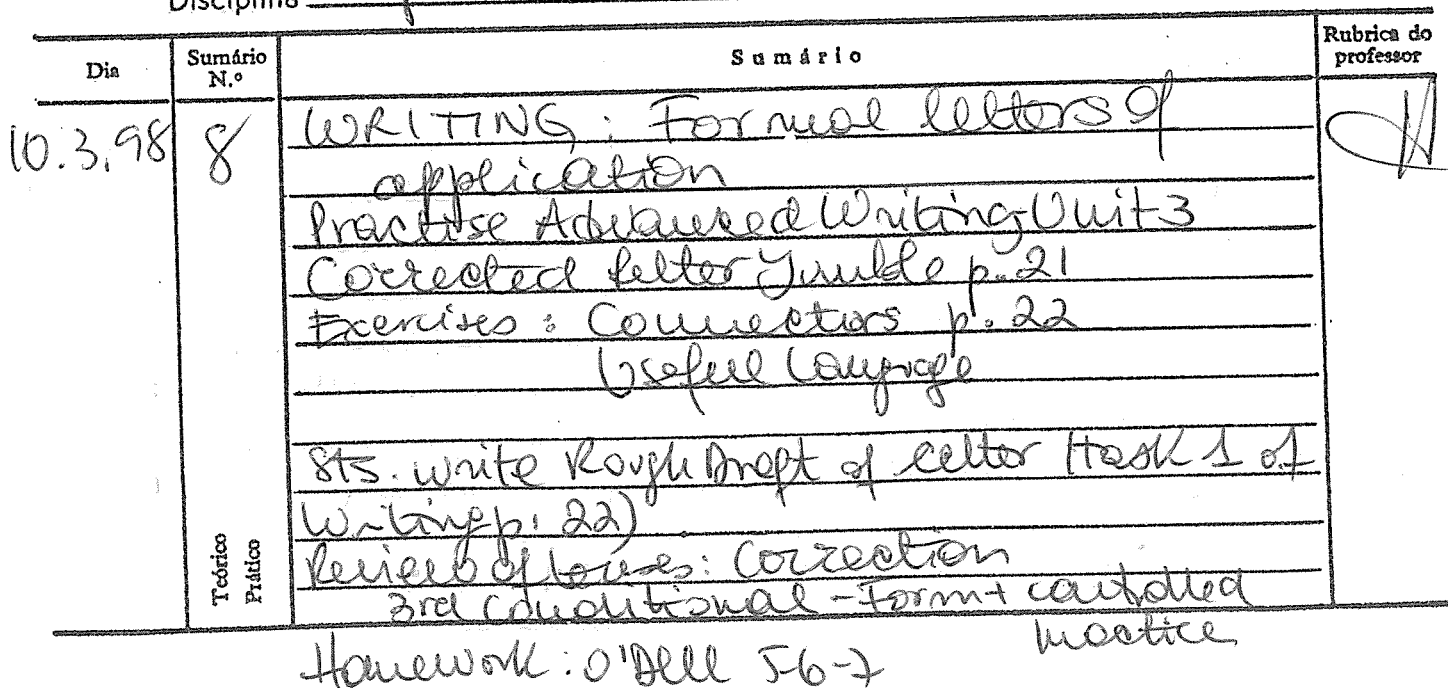 Disciplina
Dia
Sumário N.º
Sumário
Rubrica do professor
10.3.98
8
WRITING: Formal letters of
application
Practise Advanced Writing Unit 3
Corrected letter Jumble p. 21
Exercises: Connectors p. 22
Useful Language
Sts. write Rough Draft of letter (task 1 of
Writing p. 22)
Review of tenses: Correction
3rd Conditional - Form + controlled
practice
Teórico
Prático
Homework: O'Dell 5-6-7